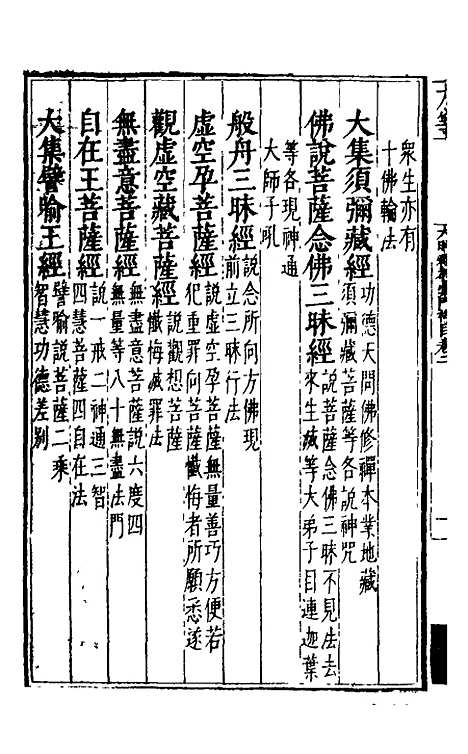 衆生亦有
十佛輪法
大集須彌藏經
功德天問佛修禪本業地藏
須彌藏菩薩等各說神咒
佛說菩薩念佛三昧經
說菩薩念佛三昧不見法去
來生滅等大弟子目連迦葉
等各現神通
大師子吼
般舟三昧經
說念所向方佛現
前立三昧行法
虛空孕菩薩經
說虛空孕菩薩無量善巧方便若
犯重罪向菩薩懺悔者所願悉遂
觀虛空藏菩薩經
說觀想菩薩
懺悔滅罪法
無盡意菩薩經
無盡意菩薩說六度四
無量等八十無盡法門
自在王菩薩經
說一戒二神通三智
四慧菩薩四自在法
大集譬喻王經
譬喻說菩薩二乘
智慧功德差別